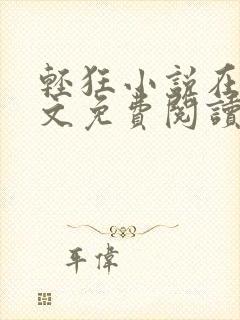 輕狂小說在
文免費閱讀
平偉